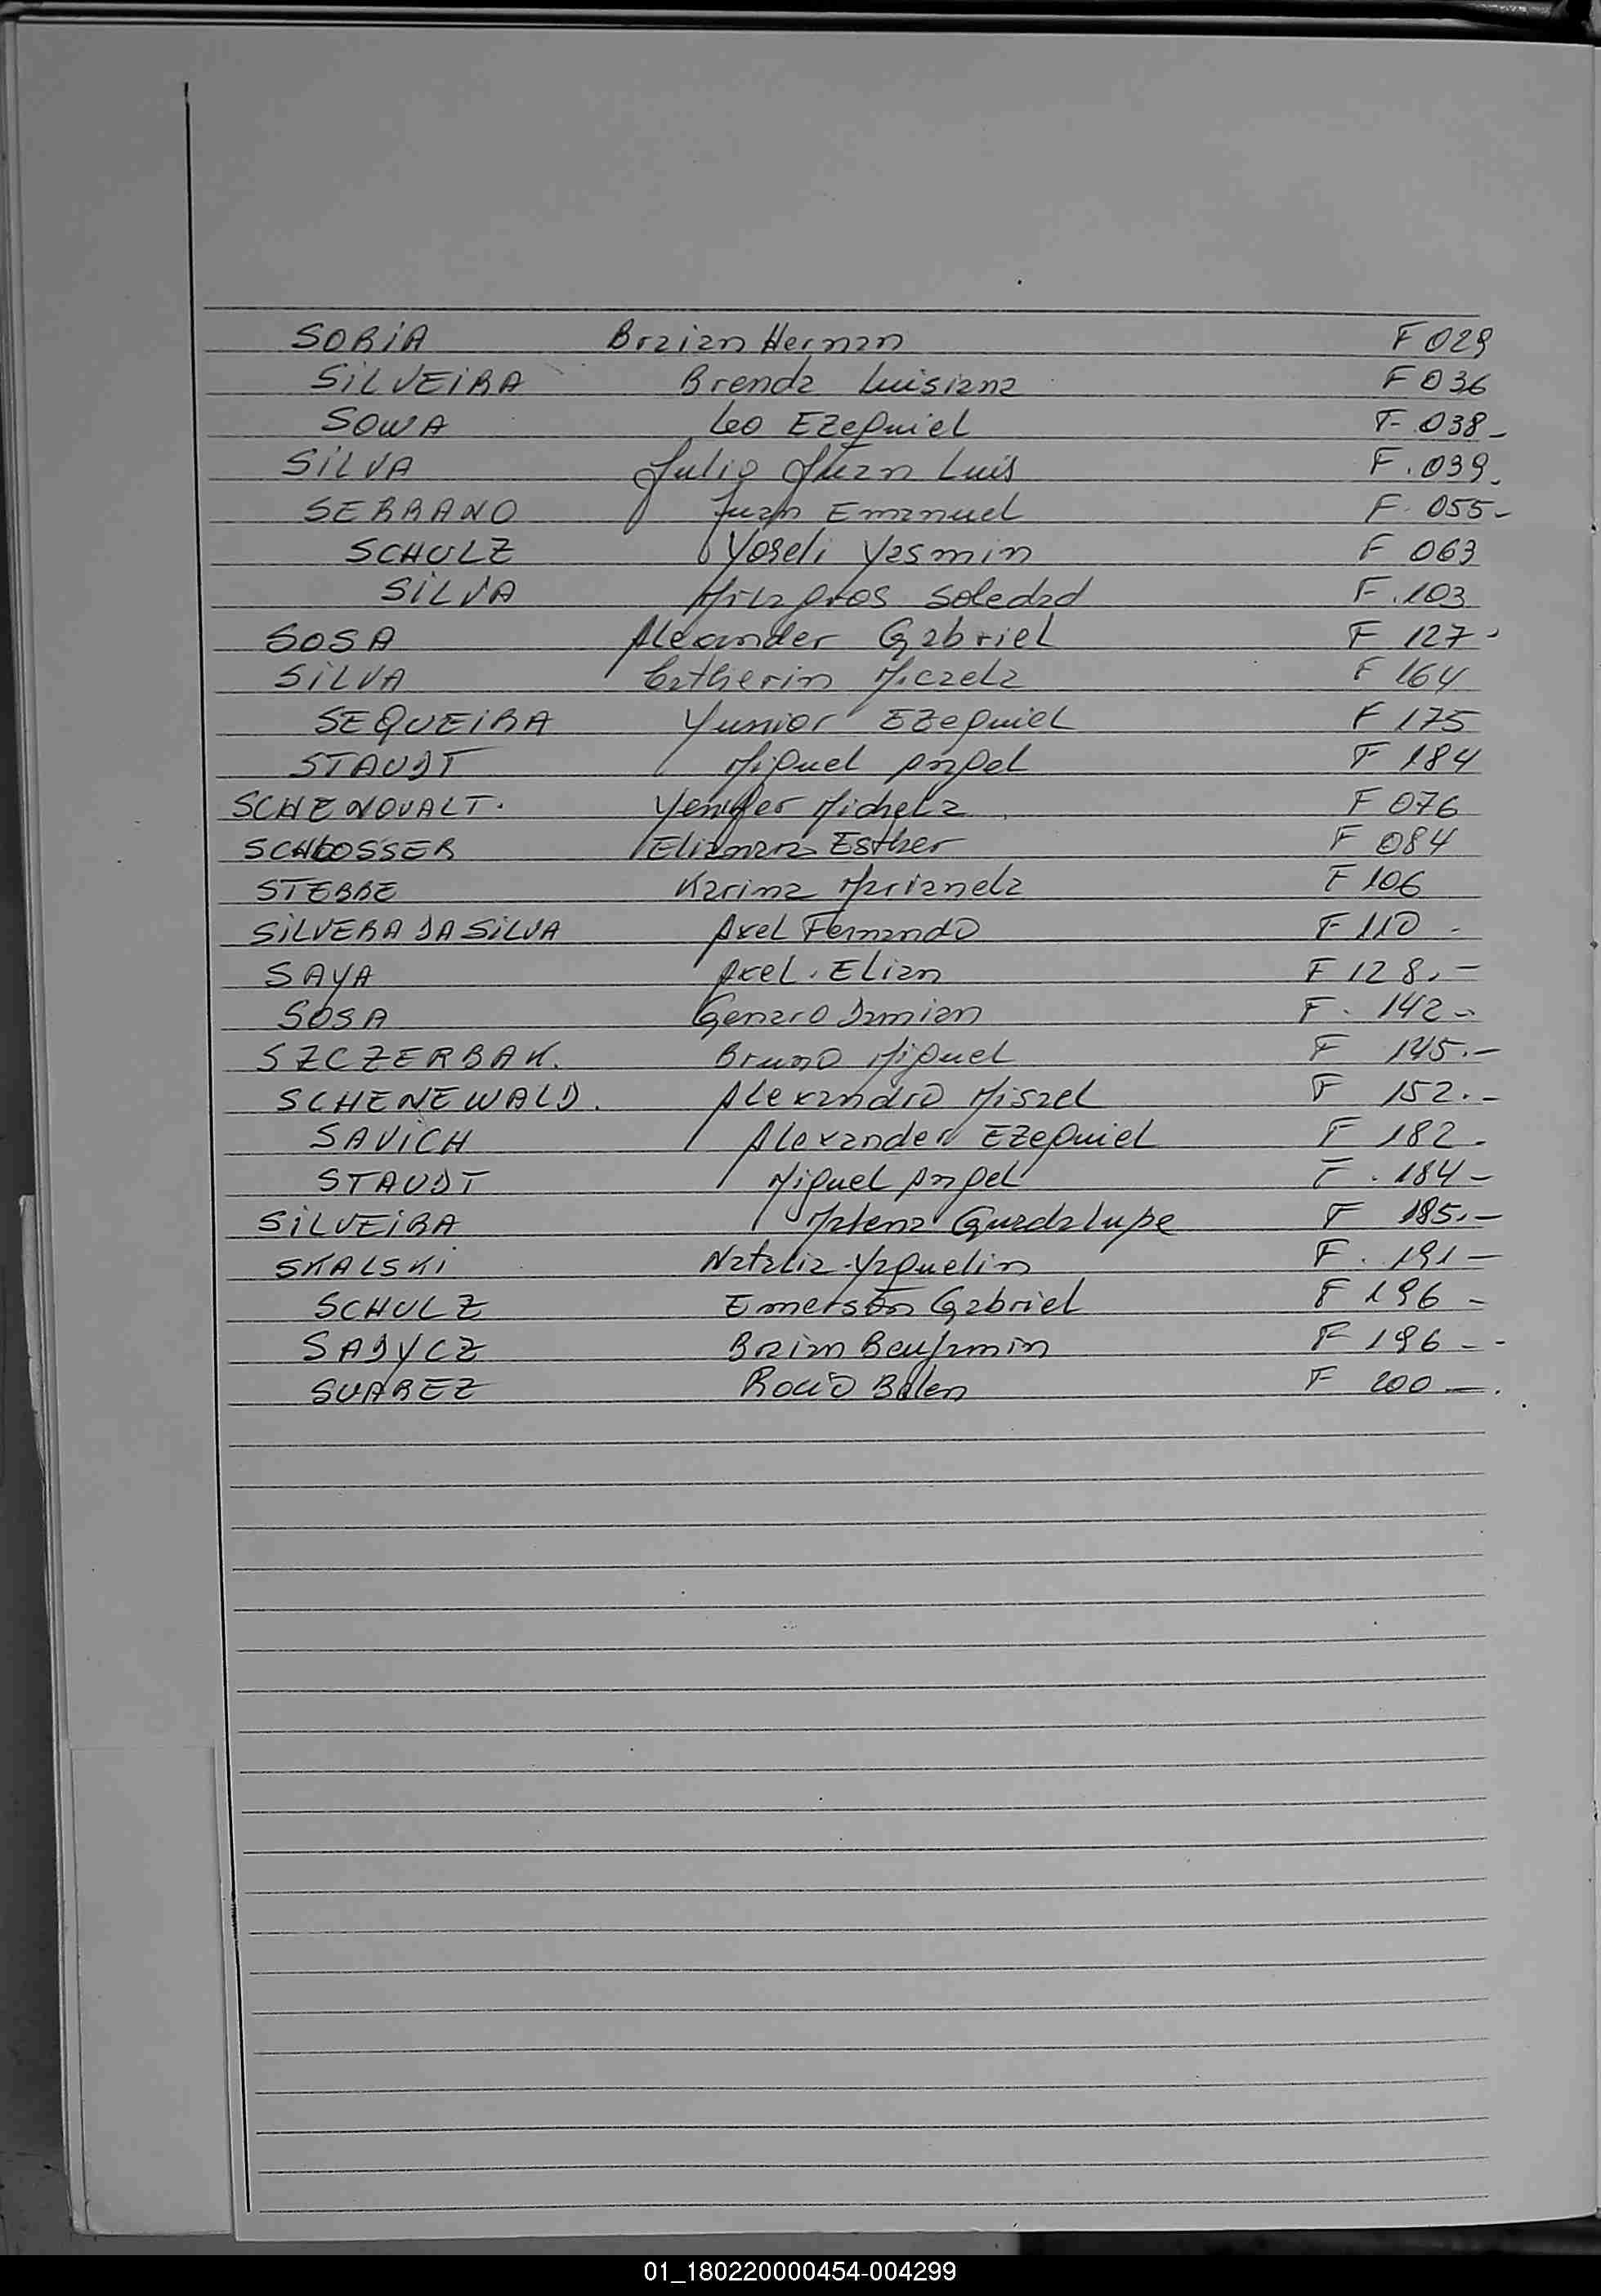 SORIA Braian Hernan F 029
SILVEIRA Brenda Luisiana F 036
SOWA Leo Ezequiel F- 038-
SILVA Julio Juan Luis F. 039.
SERRANO Juan Emanuel F. 055-
SCHULZ Yoseli Yasmin F 063
SILVA Milagros Soledad F. 103
SOSA Alexander Gabriel F 127-
SILVA Catherin Micaela F 164
SEQUEIRA Yunior Ezequiel F 175
STAUDT Miguel Angel F 184
SCHENOVALT. Yenifer Michela F 076
SCHLOSSER Elianana Esther F 084
STERBE Karina Marianela F 106
SILVERA DA SILVA Axel Fernando F 110 -
SAYA Axel. Elian F 128.-
SOSA Genaro Damian F. 142-
SZCZERBAK. Bruno Miguel F 145.-
SCHENEWALD. Alexandro Misael F 152.-
SAVICH Alexander Ezequiel F 182-
STAUDT Miguel Angel F. 184-
SILVEIRA Malena Guadalupe F 185.-
SKALSKI Natalia Yaquelin F. 191-
SCHULZ Emerson Gabriel F 196-
SADYCZ Braian Benjamin F 196--
SUAREZ Rocio Belen F 200-.
01_180220000454-004299